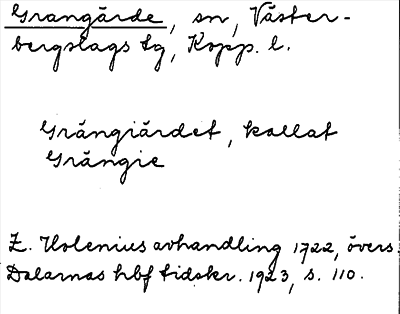 Grangärde, sn, Väster-
bergslags tg, Kopp. l.
Grängiärdet, kallat
Grängie
Z. Holenius avhandling 1722, övers.
Dalarnas hbf tidskr. 1923, s. 110.